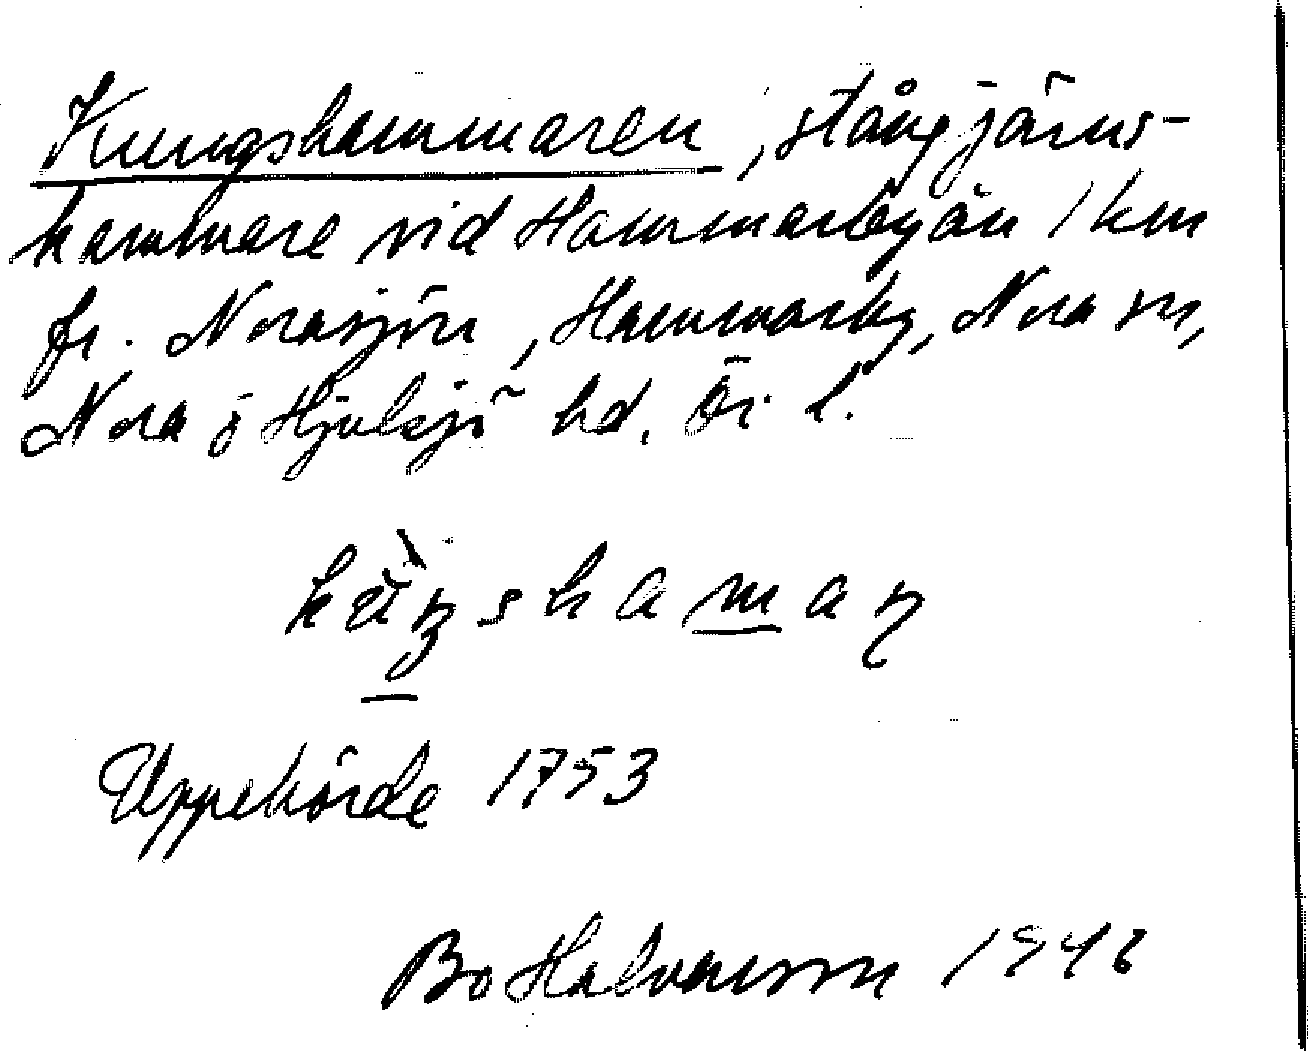 Kungshammaren, stångjärns-
hammare vid Hammarbyån 1 km
fr. Norasjön, Hammarby, Nora sn,
Nora o Hjulsjö hd. Ör. l.
Upphörde 1753
Bo Halvarsson 1946